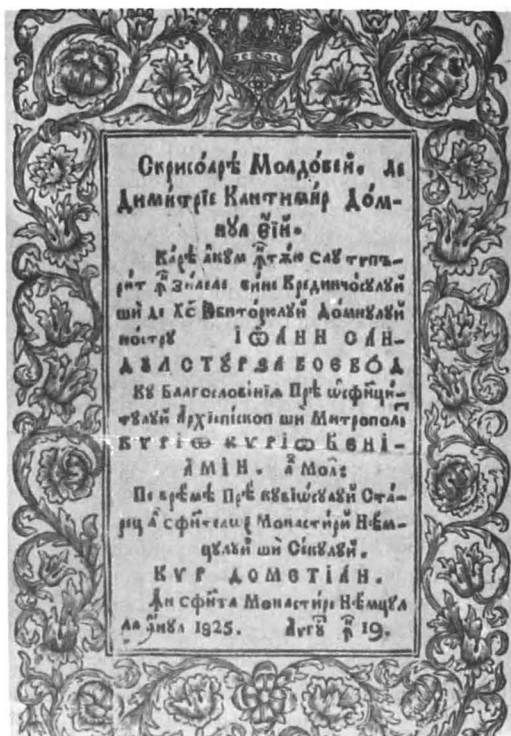 Скрисо́арѣ Молдо́вей. де
Димѝтрїе Кантими́р До́м-
нꙋл е҆ѝ.
Ка́рѣ а҆кꙋм ꙟ҆тѫ́ю сау типъ-
рит ꙟ҆ зилеле бине Крединчо́сꙋлꙋй
ши де Хс҃ Юбиторюлꙋй До́мнꙋлꙋй
ностру І҆ѠА́НН САН-
ДꙊЛ СТꙊРЗА ВОЕВО́Д
Кꙋ Благословенїѧ Прѣ ѡсфинци-
тꙋлꙋй Архїепїскоп ши Митрополи
КѴРІѠ КѴРІѠ ВЕНІ-
АМІН. а҆ Мол:
Пе врѣмѣ Прѣ кꙋвїѡсꙋлꙋй Ста́-
рец а҆ сфинтелир Монастирй Нѣм-
цꙋлꙋй ши Сѣкꙋлꙋй.
КѴР ДОМЕТІА́Н.
Ꙟн сфи́нта Монастире Нѣмцꙋл
ла а҆нꙋл 1825. Авгꙋ ꙟ 19.